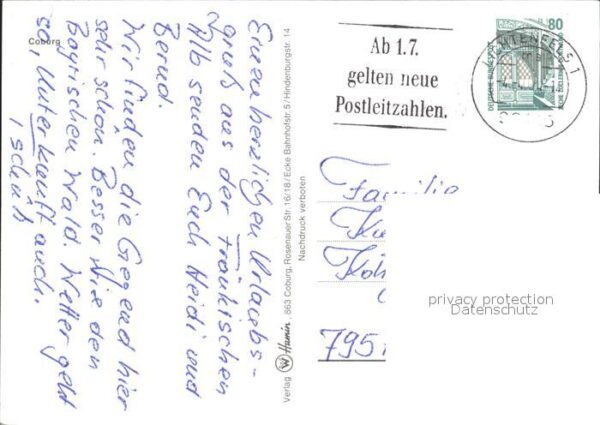 Coburg
Einen herzlichen Urlaubs-
gruß aus der Fränkischen
Alb senden Euch Heidi und
Bernd.
Wir finden die Gegend hier
sehr schön. Besser wie den
Bayrischen Wald. Wetter geht
so, Unterkunft auch,
Tschüß
Verlag Hamin, 863 Coburg, Rosenauer Str. 16/18 / Ecke Bahnhofstr. 5 / Hindenburgstr. 14
Nachdruck verboten
Ab 1.7.
gelten neue
Postleitzahlen.
LICHTENFELS 1
80
DEUTSCHE
Familie
795
privacy protection
Datenschutz